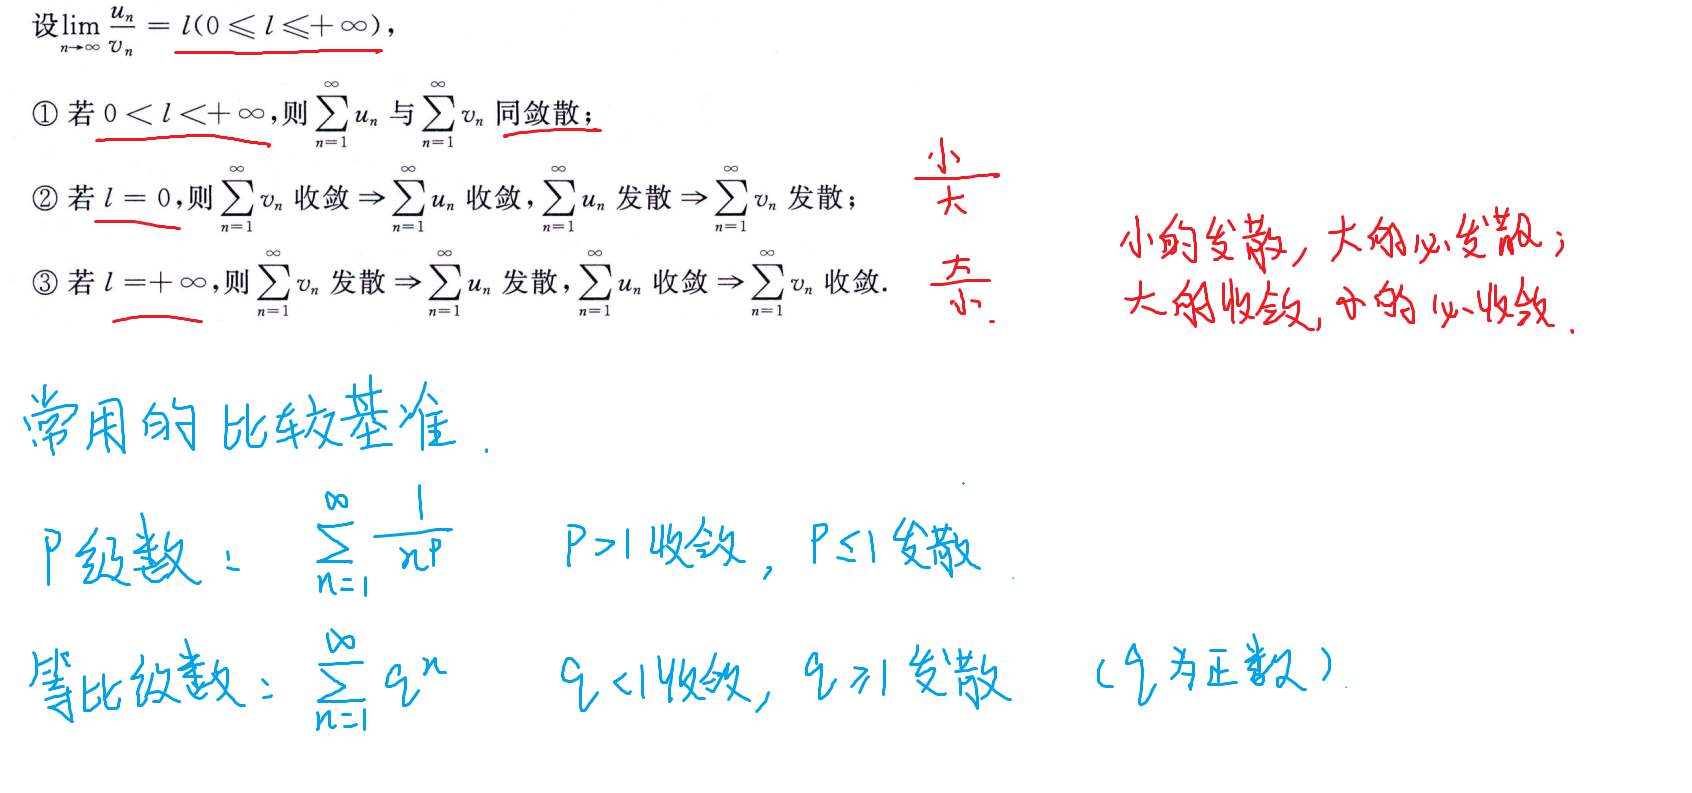 设 lim_{n→∞} u_n/v_n = l(0 ≤ l ≤ +∞),
① 若 0 < l < +∞,则 ∑_{n=1}^{∞} u_n 与 ∑_{n=1}^{∞} v_n 同敛散;
② 若 l = 0,则 ∑_{n=1}^{∞} v_n 收敛 ⇒ ∑_{n=1}^{∞} u_n 收敛, ∑_{n=1}^{∞} u_n 发散 ⇒ ∑_{n=1}^{∞} v_n 发散; 小/大
小的发散, 大的必发散;
③ 若 l = +∞,则 ∑_{n=1}^{∞} v_n 发散 ⇒ ∑_{n=1}^{∞} u_n 发散, ∑_{n=1}^{∞} u_n 收敛 ⇒ ∑_{n=1}^{∞} v_n 收敛. 大/小.
大的收敛, 小的必收敛.
常用的比较基准.
P级数: ∑_{n=1}^{∞} 1/n^p P>1收敛, P≤1发散.
等比级数: ∑_{n=1}^{∞} q^n q<1收敛, q≥1发散 (q为正数).